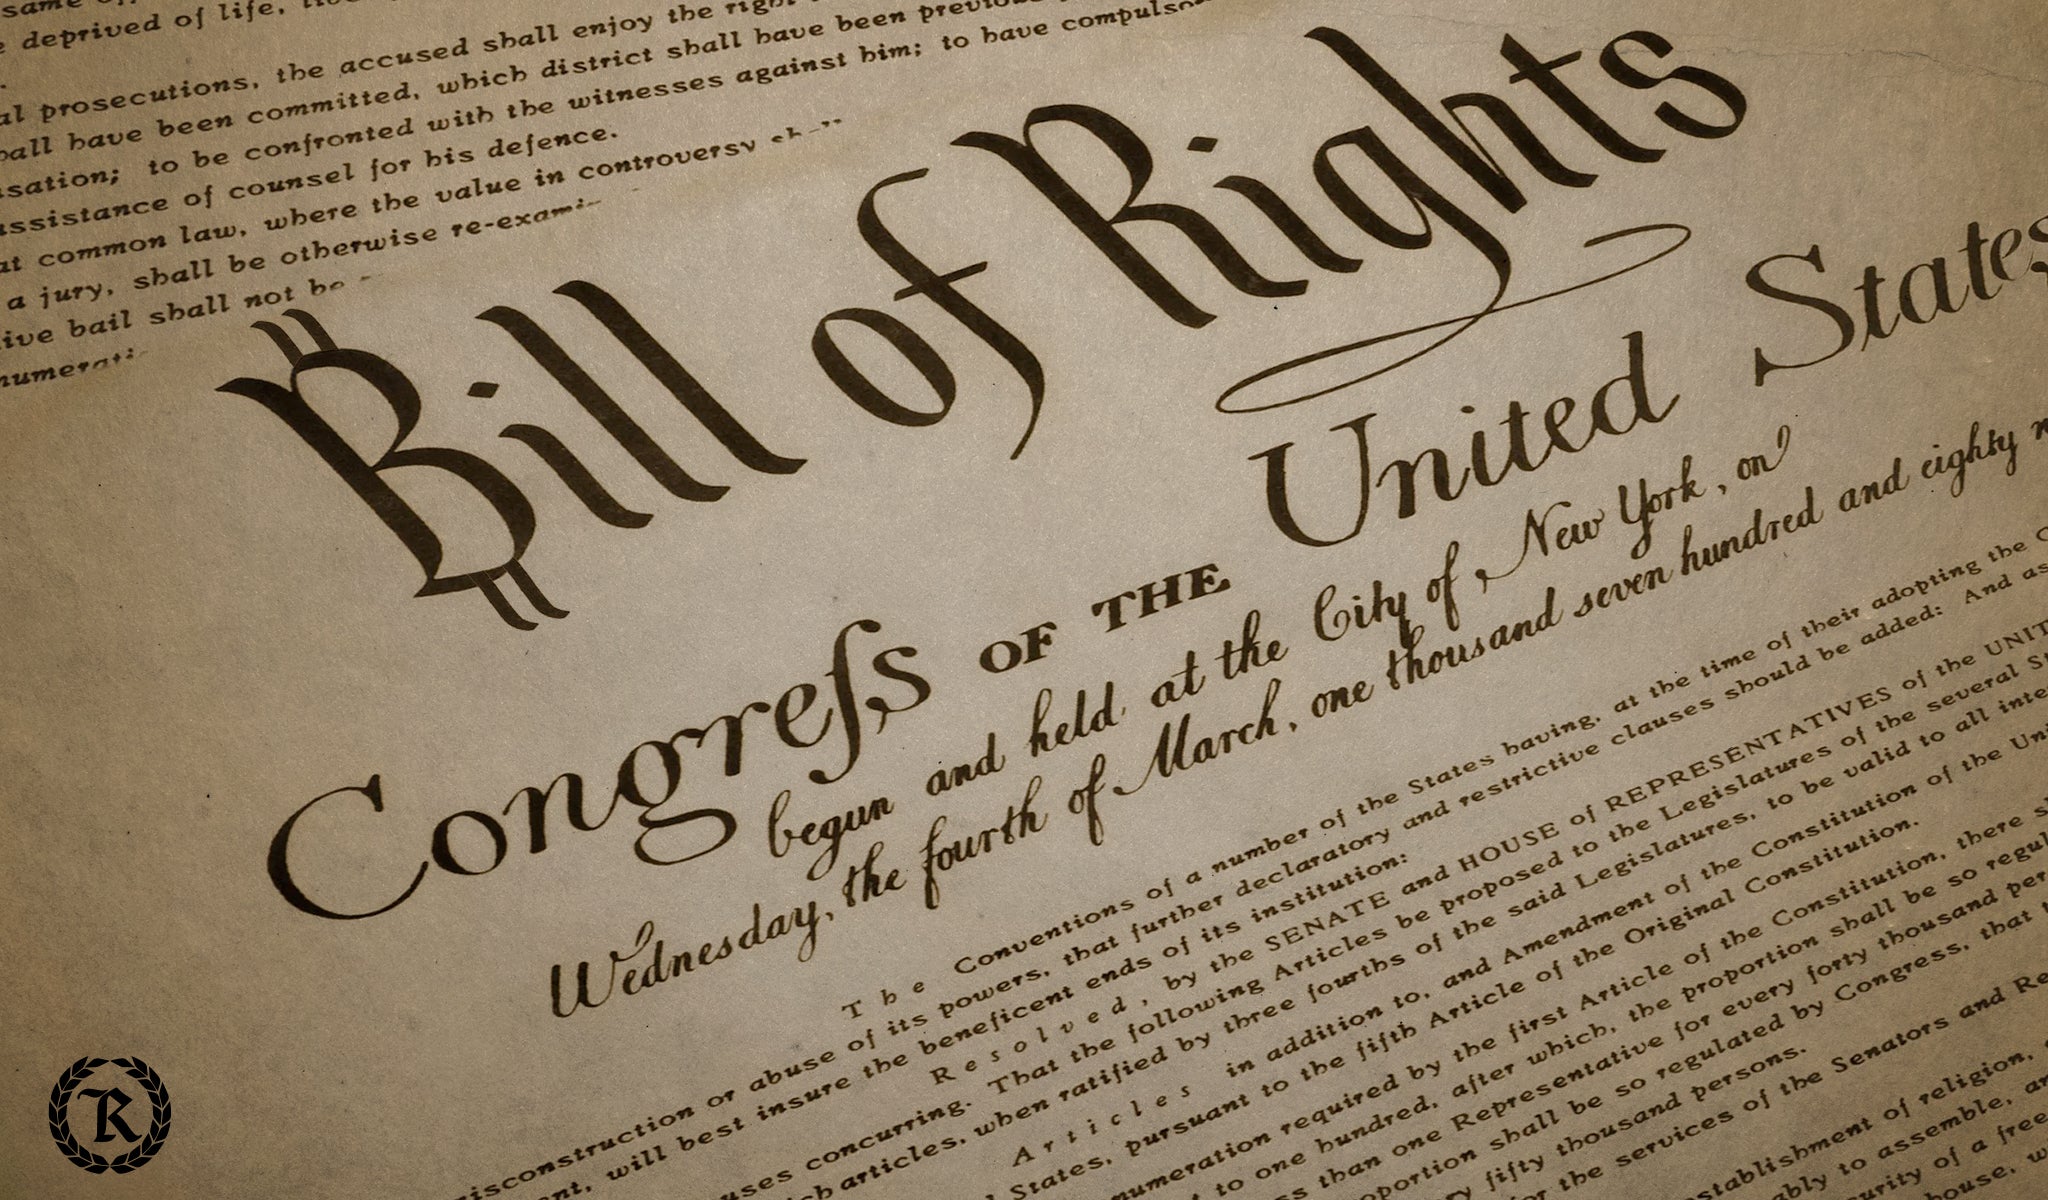 same
e deprived of life,
al prosecutions, the accused shall enjoy the right
hall have been committed, which district shall have been previous
usation; to be confronted with the witnesses against him; to have compulso
assistance of counsel for his defence.
at common law, where the value in controversy shall
a jury, shall be otherwise re-exami
ive bail shall not be
numerati
Bill of Rights
Congreſs OF THE United States,
begun and held at the City of New York, on
Wednesday, the fourth of March, one thousand seven hundred and eighty n
The Conventions of a number of the States having, at the time of their adopting the C
isconstruction or abuse of its powers, that further declaratory and restrictive clauses should be added: And as
ent, will best insure the beneficent ends of its institution:
Resolved, by the SENATE and HOUSE of REPRESENTATIVES of the UNIT
uses concurring. That the following Articles be proposed to the Legislatures of the several St
ch articles, when ratified by three fourths of the said Legislatures, to be valid to all inte
Articles in addition to, and Amendment of the Constitution of the Uni
l States, pursuant to the fifth Article of the Original Constitution.
numeration required by the first Article of the Constitution, there s
t to one hundred, after which, the proportion shall be so regul
ss than one Representative for every forty thousand per
oportion shall be so regulated by Congress, that t
ry fifty thousand persons.
or the services of the Senators and Re
stablishment of religion,
ably to assemble, an
urity of a free
house, w
R